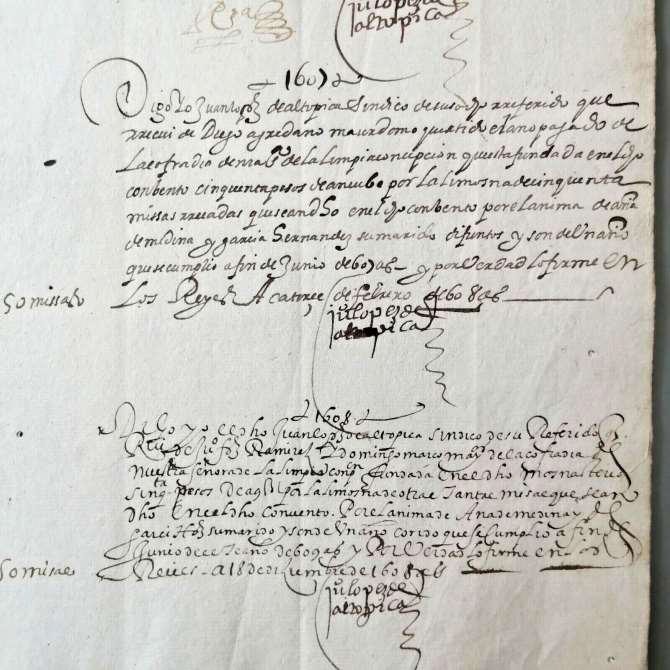 julopezde
altopica
1607
Digo Yo Juan lopz de altopica Sindico desuso dho rreferido que
rreceui de Diego ayredano mayordomo que a sido el ano pasado de
La cofradia de nra sa de la limpia concepcion questa fundada en el dho
conbento cinquenta pesos de a nuebo por La limosna de cinquenta
missas rrecadas que se an dho en el dho conbento por el anima de ana
de medina y garcia Hernandez su marido difuntos y son de Un año
que se cumplio a fin de Junio de 607 as y por Verdad lo firme en
50 missas
Los Reyes A catorce de febrero de 608 as
julopezde
altopica
1608
Digo yo el dho Juan lopz de altopica sindico de su Referido
Rui de Juo fz Ramirez y domingo marco maymos de la cofradia
nuestra señora de la Limpia conpn fundada en el dho monasterio
sinqta pesos de a 9 Rs por La limosna de otras tantas misas que se an
dho en el dho Convento. Por el anima de Ana de medina y
garci Hoz su marido y son de Un año corido que se cumplio a fin
Junio de este ano de 608 as y Por Verdad lo firme en los
50 misas
Reies A 18 de diziembre de 1608 as
julopezde
altopica